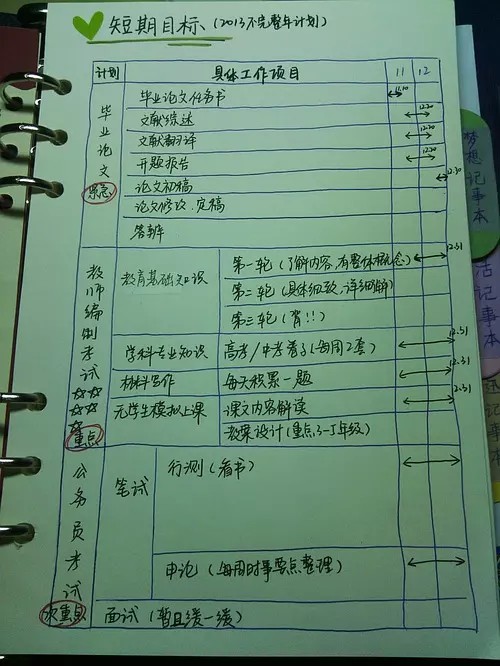 短期目标、(2013不完整年计划)
计划 具体工作项目 11 12
毕业论文 紧急
毕业论文任务书 11.10
文献综述 12.20
文献翻译 12.20
开题报告 12.20
论文初稿 12.30
论文修改、定稿
答辩
教师编制考试 ☆☆☆☆☆ 重点
教育基础知识 第一轮(了解内容,有整体概念) 12.31
第二轮(具体细致,详细解)
第三轮(背!!)
学科专业知识 高考/中考卷子(每周2套) 12.31
材料写作 每天积累一题 12.31
无学生模拟上课 课文内容解读 12.31
教案设计(重点3-5年级)
公务员考试 次重点
笔试 行测(看书)
申论(每周时事要点整理)
面试(暂且缓一缓)
梦想记事本
活记事本